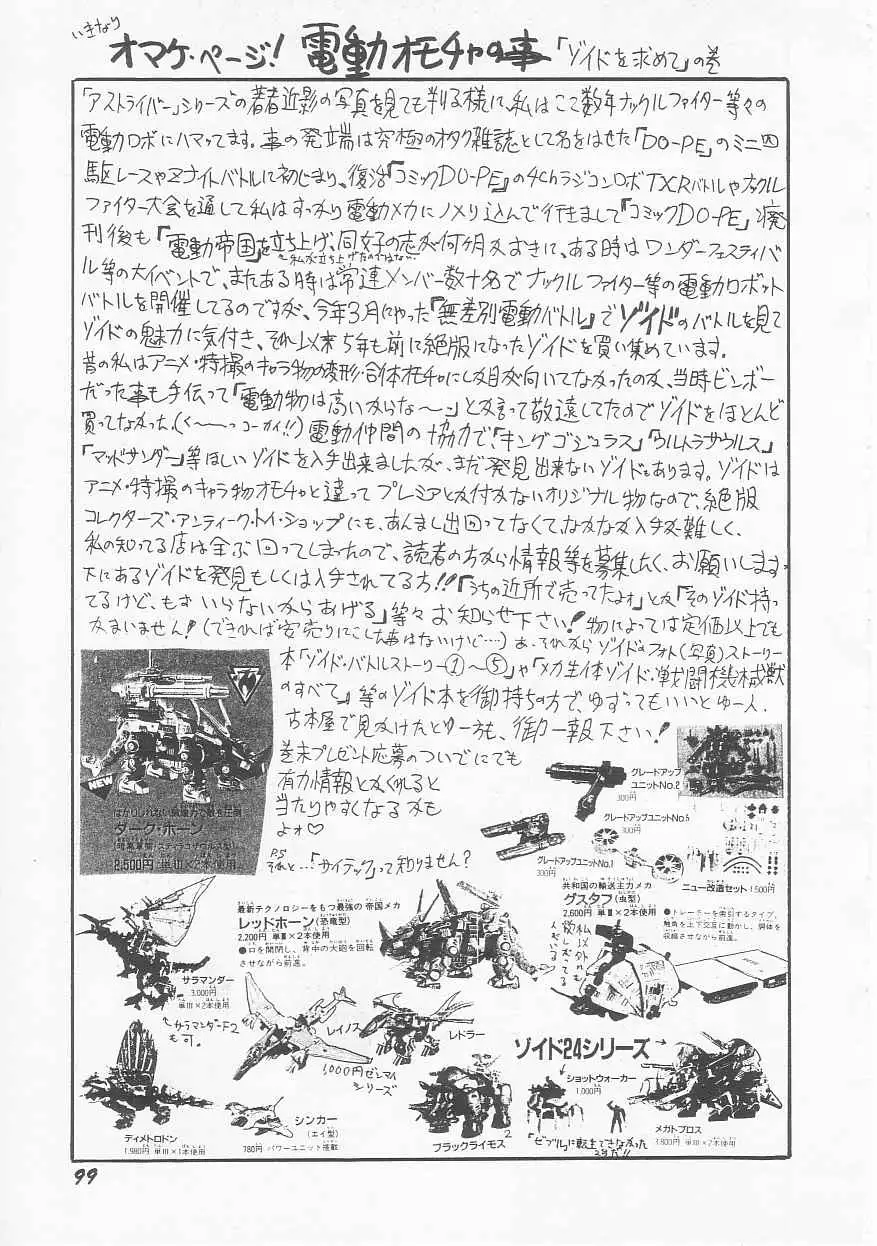 いきなり
オマケ・ページ! 電動オモチャの事 「ゾイドを求めて」の巻
「アストライバー」シリーズの著者近影の写真を見ても判る様に、私はここ数年ナックルファイター等々の
電動ロボにハマッてます。事の発端は究極のオタク雑誌として名をはせた「DO-PE」のミニ四
駆レースやZナイトバトルに初じまり、復活「コミックDO-PE」の4chラジコンロボTXRバトルやナックル
ファイター大会を通して私はすっかり電動メカにノメリ込んで行きまして「コミックDO-PE」廃
刊後も「電動帝国」を立ち上げ、同好の志が何ヶ月かおきに、ある時はワンダーフェスティバ
〜私が立ち上げたのではない…
ル等の大イベントで、またある時は常連メンバー数十名でナックルファイター等の電動ロボット
バトルを開催してるのですが、今年3月にやった「無差別電動バトル」でゾイドのバトルを見て
ゾイドの魅力に気付き、それ以来5年も前に絶版になったゾイドを買い集めています。
昔の私はアニメ・特撮のキャラ物の変形・合体オモチャにしか目が向いてなかったのが、当時ビンボー
だった事も手伝って「電動物は高いからな〜」とか言って敬遠してたのでゾイドをほとんど
買ってなかった。(く〜〜っコーカイ!!) 電動仲間の協力で、「キングゴジュラス」「ウルトラザウルス」
「マッドサンダー」等ほしいゾイドを入手出来ましたが、まだ発見出来ないゾイドもあります。ゾイドは
アニメ・特撮のキャラ物オモチャと違ってプレミアとか付かないオリジナル物なので、絶版
コレクターズ・アンティーク・トイ・ショップにも、あんまし出回ってなくて、なかなか入手が難しく、
私の知ってる店は全ぶ回ってしまったので、読者の方から情報等を募集したく、お願いします。
下にあるゾイドを発見もしくは入手されてる方!!「うちの近所で売ってたよォ」とか「そのゾイド持っ
てるけど、もすいらないからあげる」等々お知らせ下さい! 物によっては定価以上でも
かまいません!(できれば安売りにこした事はないけど…) あ、それからゾイドのフォト(写真)ストーリー
本「ゾイド・バトルストーリー①〜⑤」や「メカ生体ゾイド・戦闘機械獣
のすべて」等のゾイド本を御持ちの方で、ゆずってもいいとゆー人、
古本屋で見かけたとゆー方も、御一報下さい!
巻末プレゼント応募のついでにでも
有力情報とかくれると
当たりやすくなるかも
よォ♡
P.S
それと…「サイテック」って知りません?
NEW
はかりしれない破壊力で敵を圧倒
ダーク・ホーン
(暗黒軍団・スティラコサウルス型)
2,500円 単III×2本使用
グレードアップ
ユニットNo.2
300円
グレードアップユニットNo.5
300円
グレードアップユニットNo.1
300円
ニュー改造セット 1,500円
最新テクノロジーをもつ最強の帝国メカ
レッドホーン(恐竜型)
2,200円 単III×2本使用
●口を開閉し、背中の大砲を回転
させながら前進。
共和国の輸送主力メカ
グスタフ(虫型)
2,600円 単III×2本使用
●トレーラーを索引するタイプ。
触角を上下交互に動かし、胴体を
収縮させながら前進。
私以外にも
欲しがってる
人がいる
サラマンダー
3,000円
単III×2本使用
サラマンダーF2
も可。
レイノス
レドラー
1,000円ゼンマイ
シリーズ
ゾイド24シリーズ
ショットウォーカー
1,000円
メガトプロス
3,800円 単III×2本使用
ディメトロドン
1,980円 単III×1本使用
シンカー
(エイ型)
780円 パワーユニット搭載
ブラックライモス
「ゼブル」に転生できなかった
コマだ!!
99